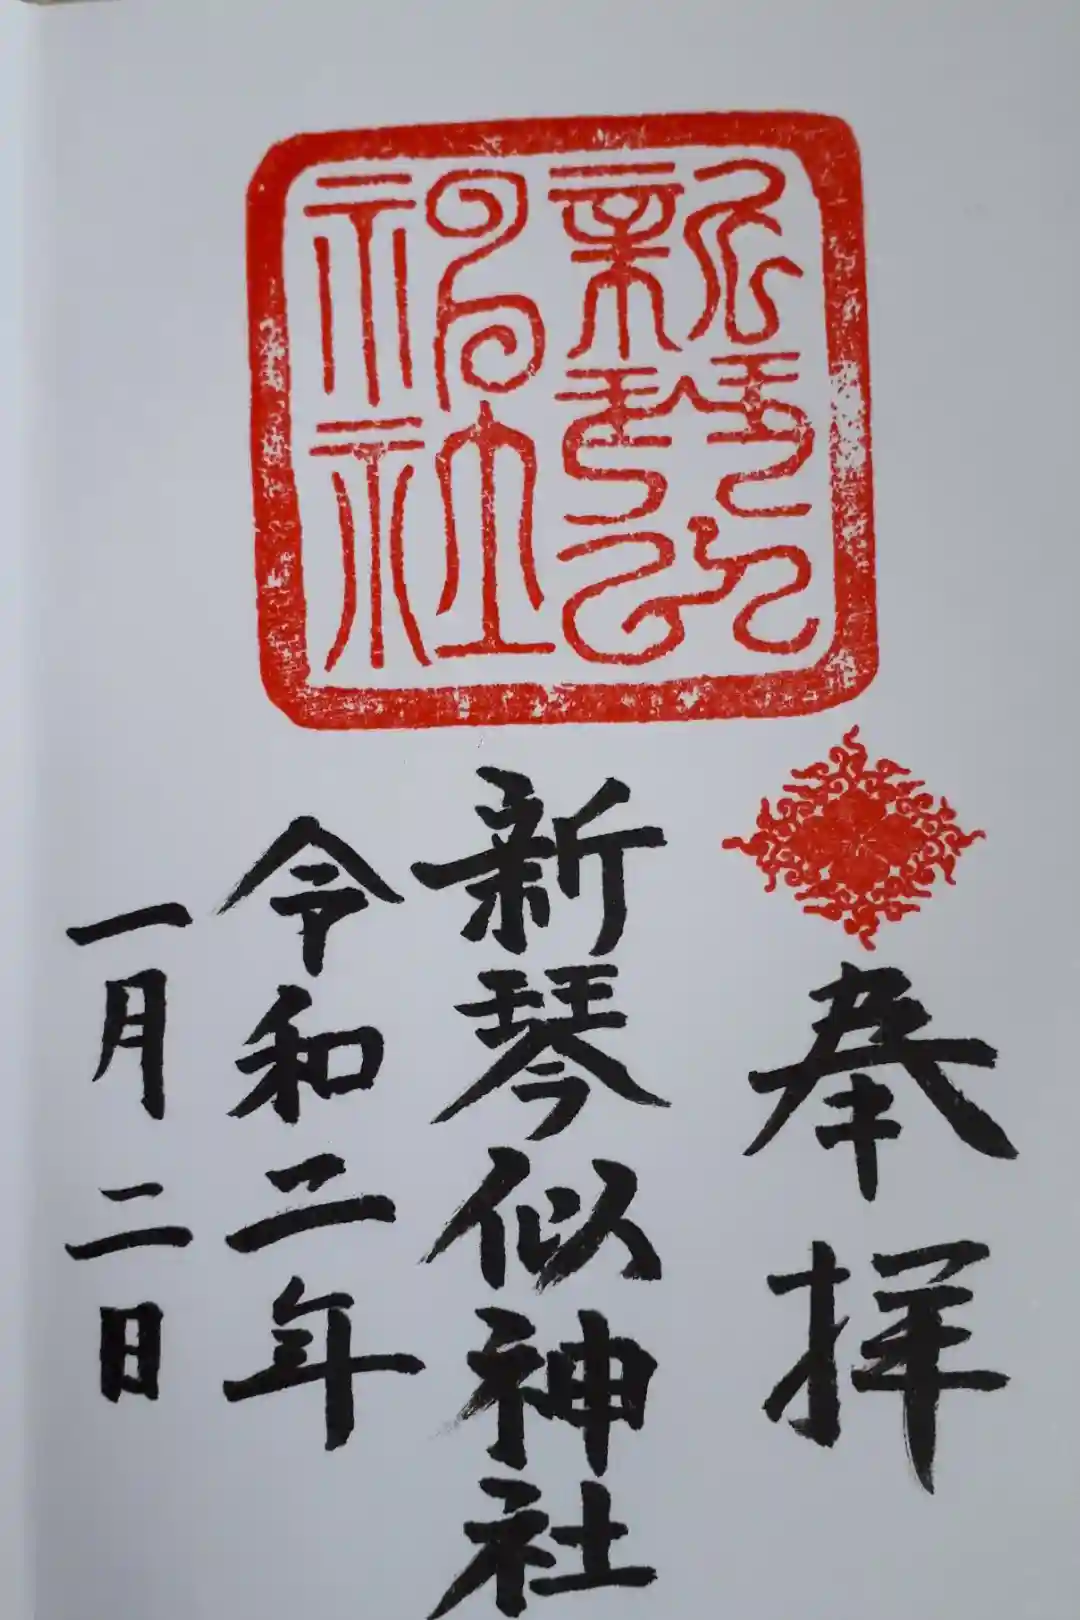 新琴似
神社
奉拝
新琴似神社
令和二年
一月二日